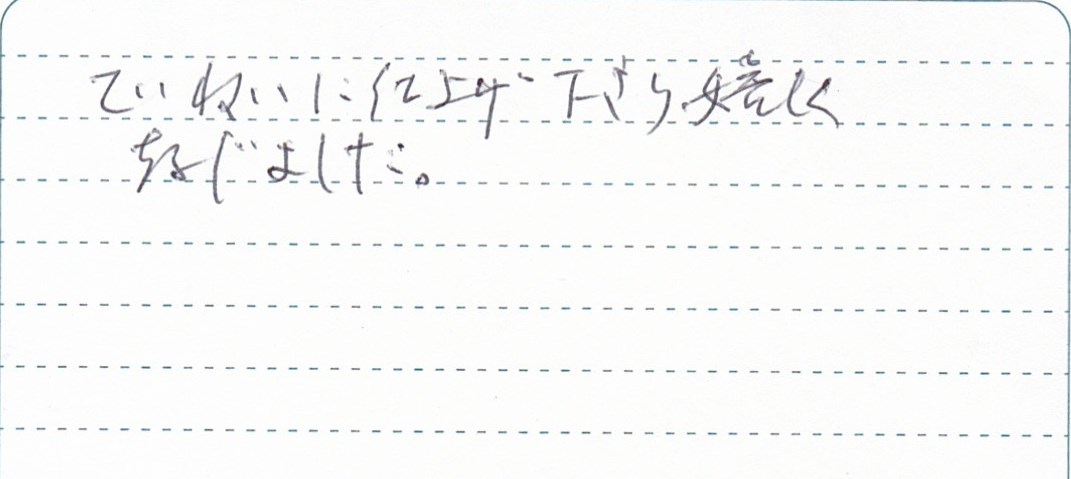 ていねいに仕上げ下さり嬉しく
存じました。